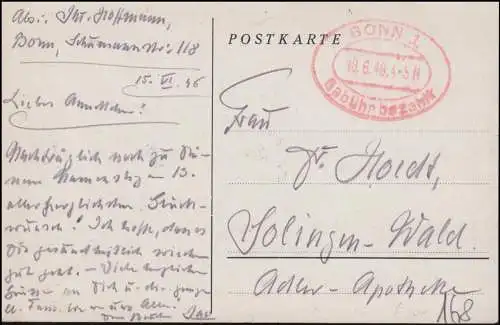 Abs.: Thr. Hoffmann,
Bonn, Schumannstr. 118
15. VI. 46
Liebes Annchen!
Nachträglich noch zu Dei-
nem Namenstag – 13.
allerherzlichsten Glück-
wunsch! Ich hoffe, dass es
Dir gesundheitlich wieder
gut geht. – Viele herzliche
Grüsse an Dich u. die ganze
Dein
POSTKARTE
BONN 1
18.6.46.4-5 N
Gebühr bezahlt
Frau
Dr. Hordt,
Solingen-Wald.
Adler-Apotheke
168